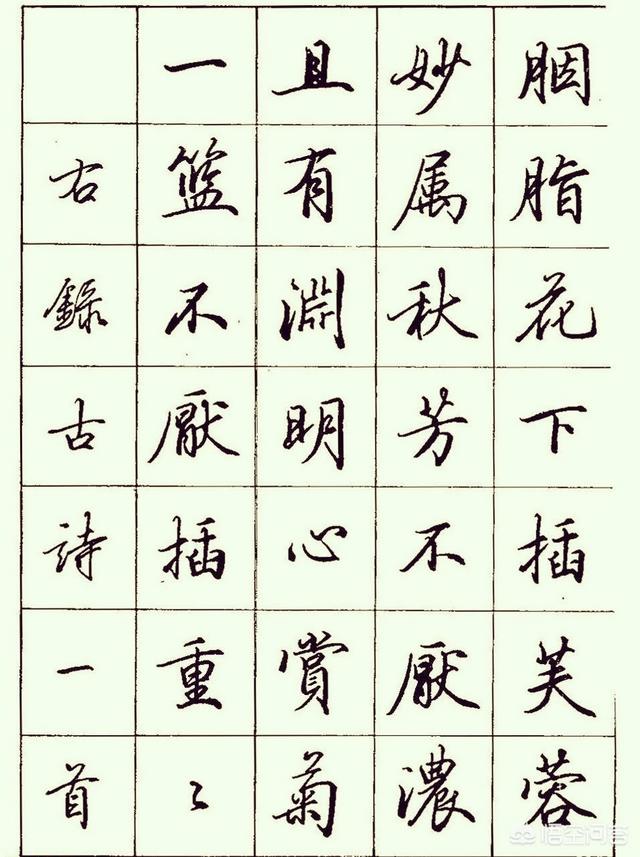 胭脂花下插芙蓉
妙属秋芳不厭濃
且有淵明心賞菊
一籃不厭插重〻
右錄古詩一首
悟空问答